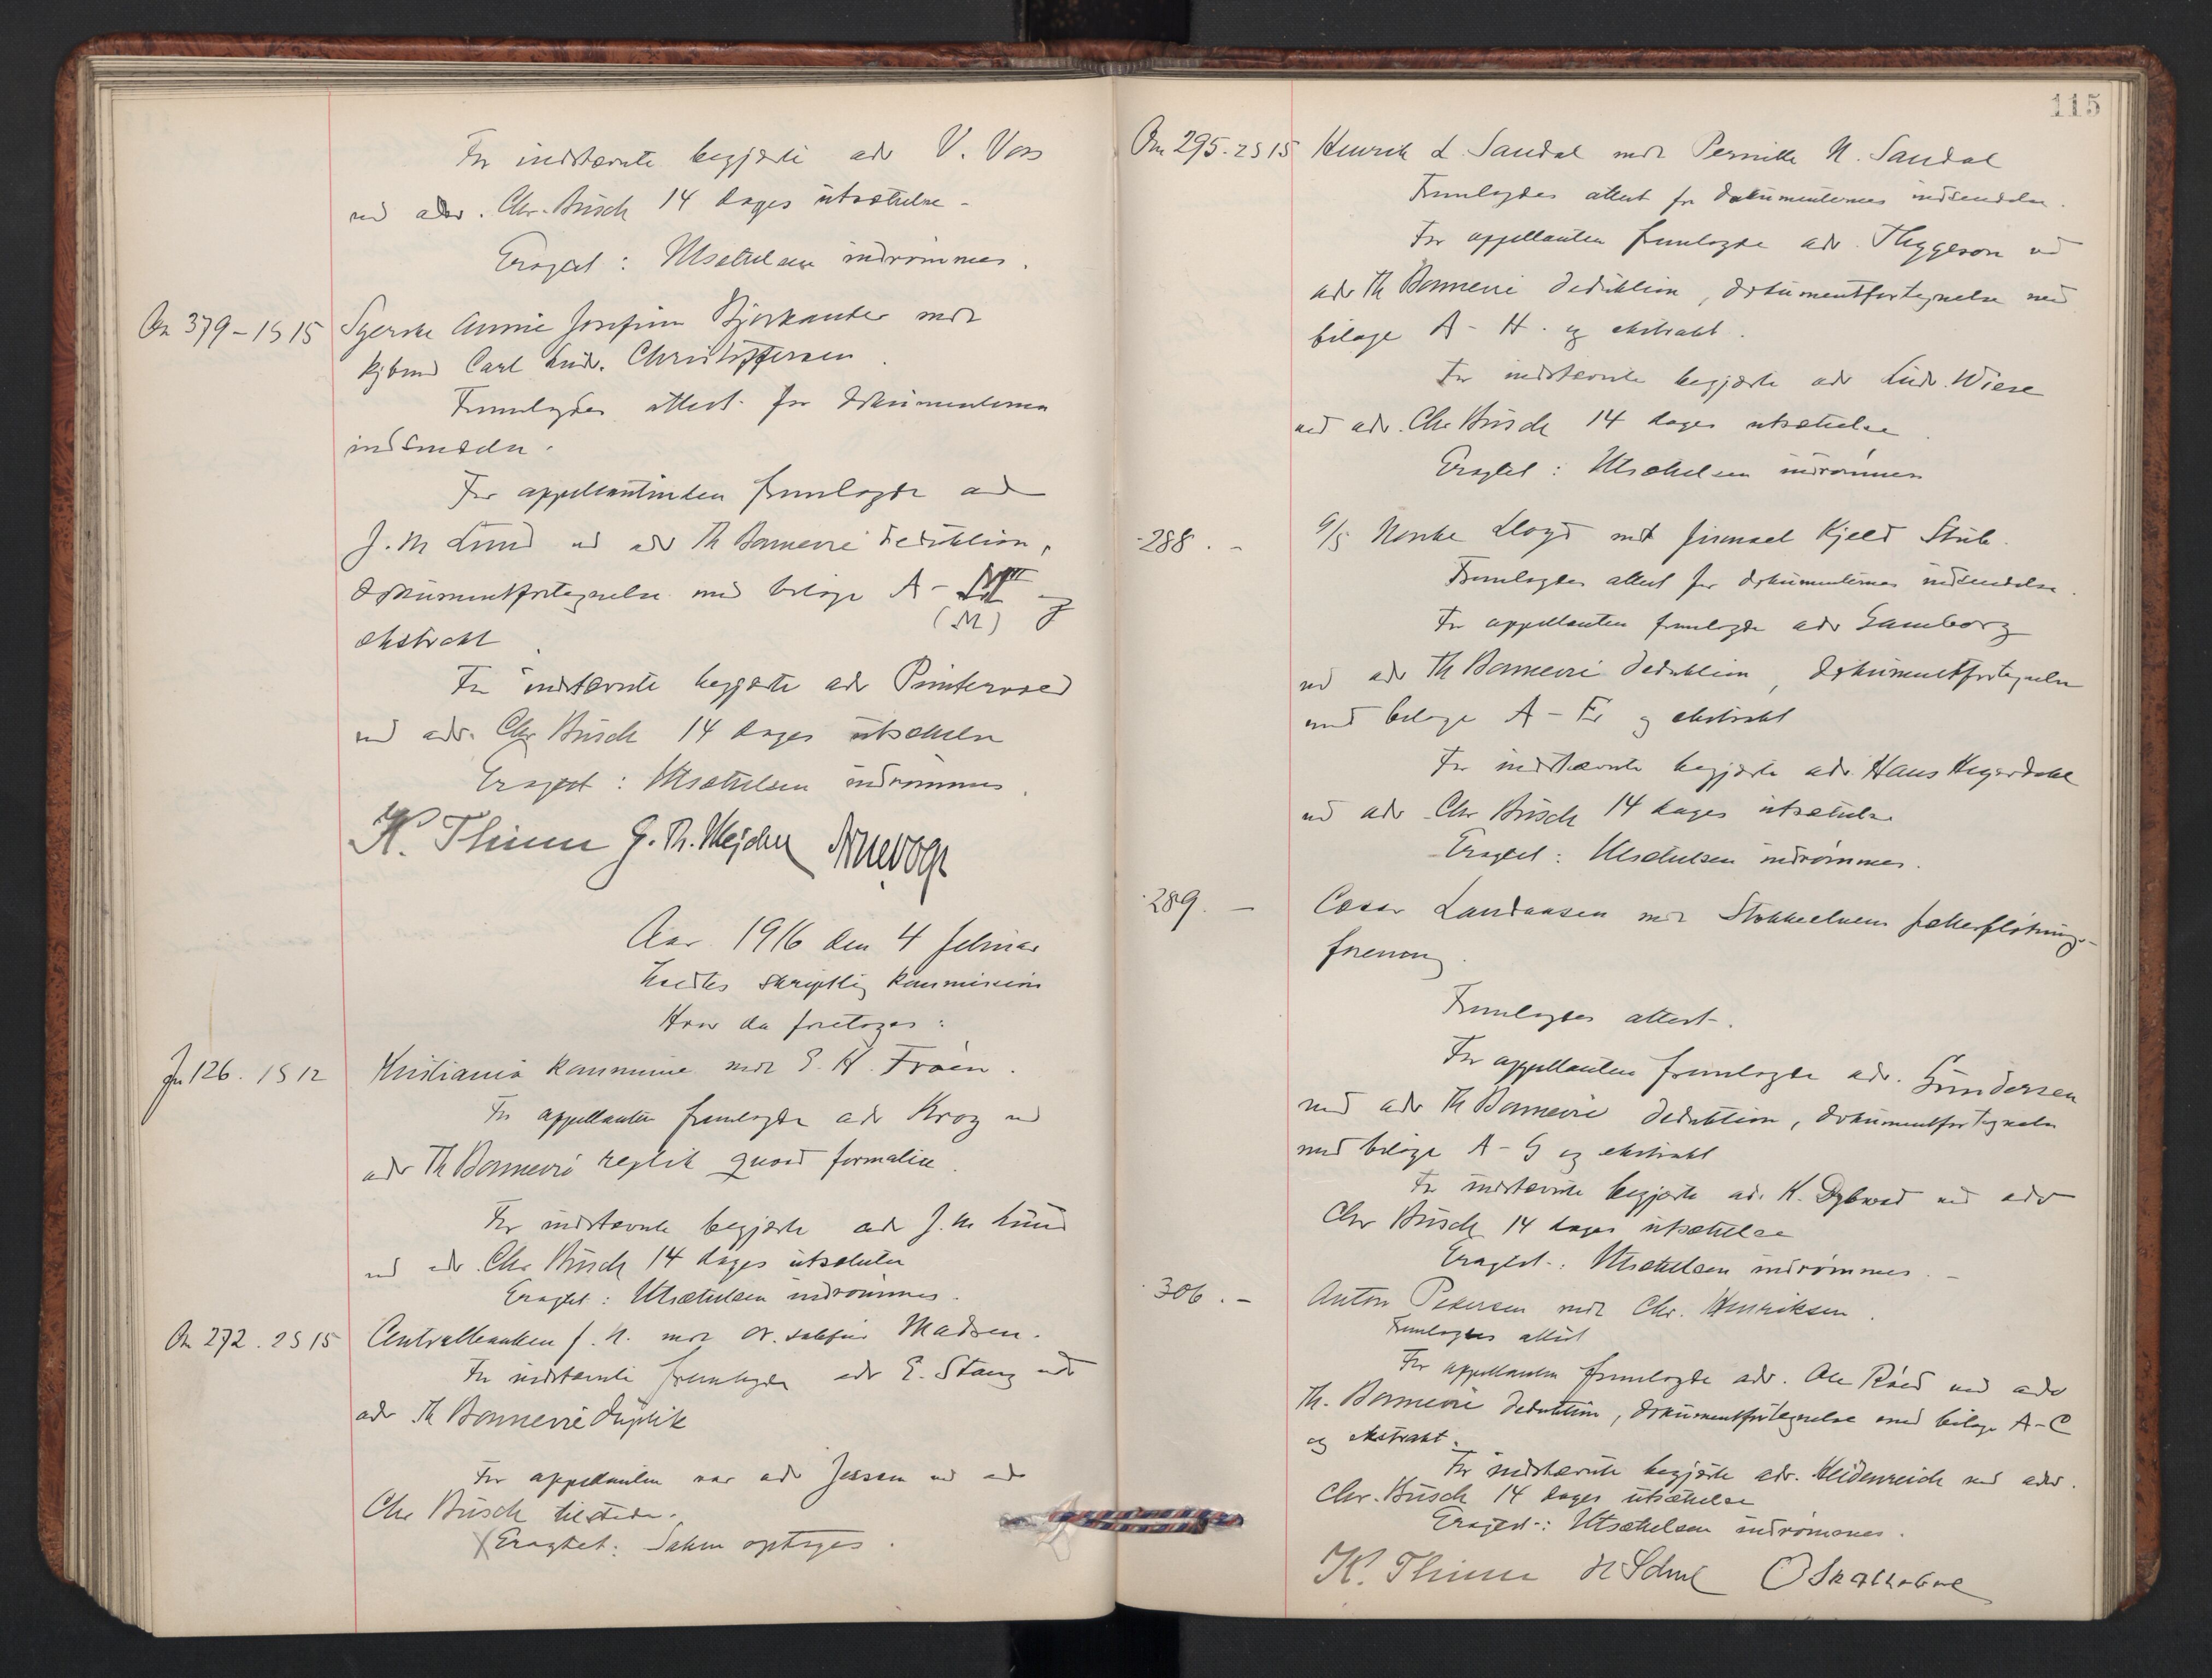 For indstevnte begjærte adv V. Voss
ved adv. Chr. Busch 14 dages utsættelse.
Eragtet: Utsættelsen indrømmes.
379 - 1915 Syerske Annie Josefine Bjørkander mot
kjøbmd Carl Ludv. Christoffersen.
Fremlagdes attest for dokumenternes
indsendelse.
For appellantinden fremlagde adv
J. M. Lund ved adv Th Bonnevie deduktion,
dokumentfortegnelse med bilage A - og
(M)
ekstrakt.
For indstevnte begjærte adv
ved adv. Chr Busch 14 dages utsættelse
Eragtet: Utsættelsen indrømmes.
K. Thinn
Aar 1916 den 4 februar
holdtes skriftlig kommission
Hvor da foretoges:
126. 1912 Kristiania kommune mot S. H. Frøen.
For appellanten fremlagde adv Krog ved
adv Th Bonnevie replik quoad formalia.
For indstevnte begjærte adv J. M. Lund
ved adv. Chr. Busch 14 dages utsættelse
Eragtet: Utsættelsen indrømmes.
272. 1915 Centralbanken f. N. mot Madsen.
For indstevnte fremlagde adv E. Stang ved
adv Th Bonnevie duplik
For appellanten var adv Jessen ved adv
Chr Busch tilstede.
Eragtet: Saken optages.
115
295. 1915 Henrik L. Sandal mot Pernille N. Sandal
Fremlagdes attest for dokumenternes indsendelse.
For appellanten fremlagde adv. Thyggeson ved
adv Th Bonnevie deduktion, dokumentfortegnelse med
bilage A - H. og ekstrakt.
For indstevnte begjærte adv Ludv. Wiese
ved adv. Chr Busch 14 dages utsættelse.
Eragtet: Utsættelsen indrømmes
288. - A/S Norske Lloyd mot firmaet Kjeld Stub.
Fremlagdes attest for dokumenternes indsendelse.
For appellanten fremlagde adv Gamborg
ved adv Th Bonnevie deduktion, dokumentfortegnelse
med bilage A - E og ekstrakt
For indstevnte begjærte adv. Hans
ved adv Chr Busch 14 dages utsættelse
Eragtet: Utsættelsen indrømmes.
289. - mot Stokkeelvens fællesfløtnings-
forening.
Fremlagdes attest.
For appellanten fremlagde adv. Gundersen
ved adv Th Bonnevie deduktion, dokumentfortegnelse
med bilage A - G og ekstrakt
For indstevnte begjærte adv. K. Dybwad ved adv
Chr Busch 14 dages utsættelse
Eragtet: Utsættelsen indrømmes.
306. - Anton Pedersen mot Chr. Henriksen.
Fremlagdes attest
For appellanten fremlagde adv. Ole Røed ved adv
Th. Bonnevie deduktion, dokumentfortegnelse med bilage A-C
og ekstrakt.
For indstevnte begjærte adv. Heidenreich ved adv.
Chr. Busch 14 dages utsættelse
Eragtet: Utsættelsen indrømmes.
K. Thinn